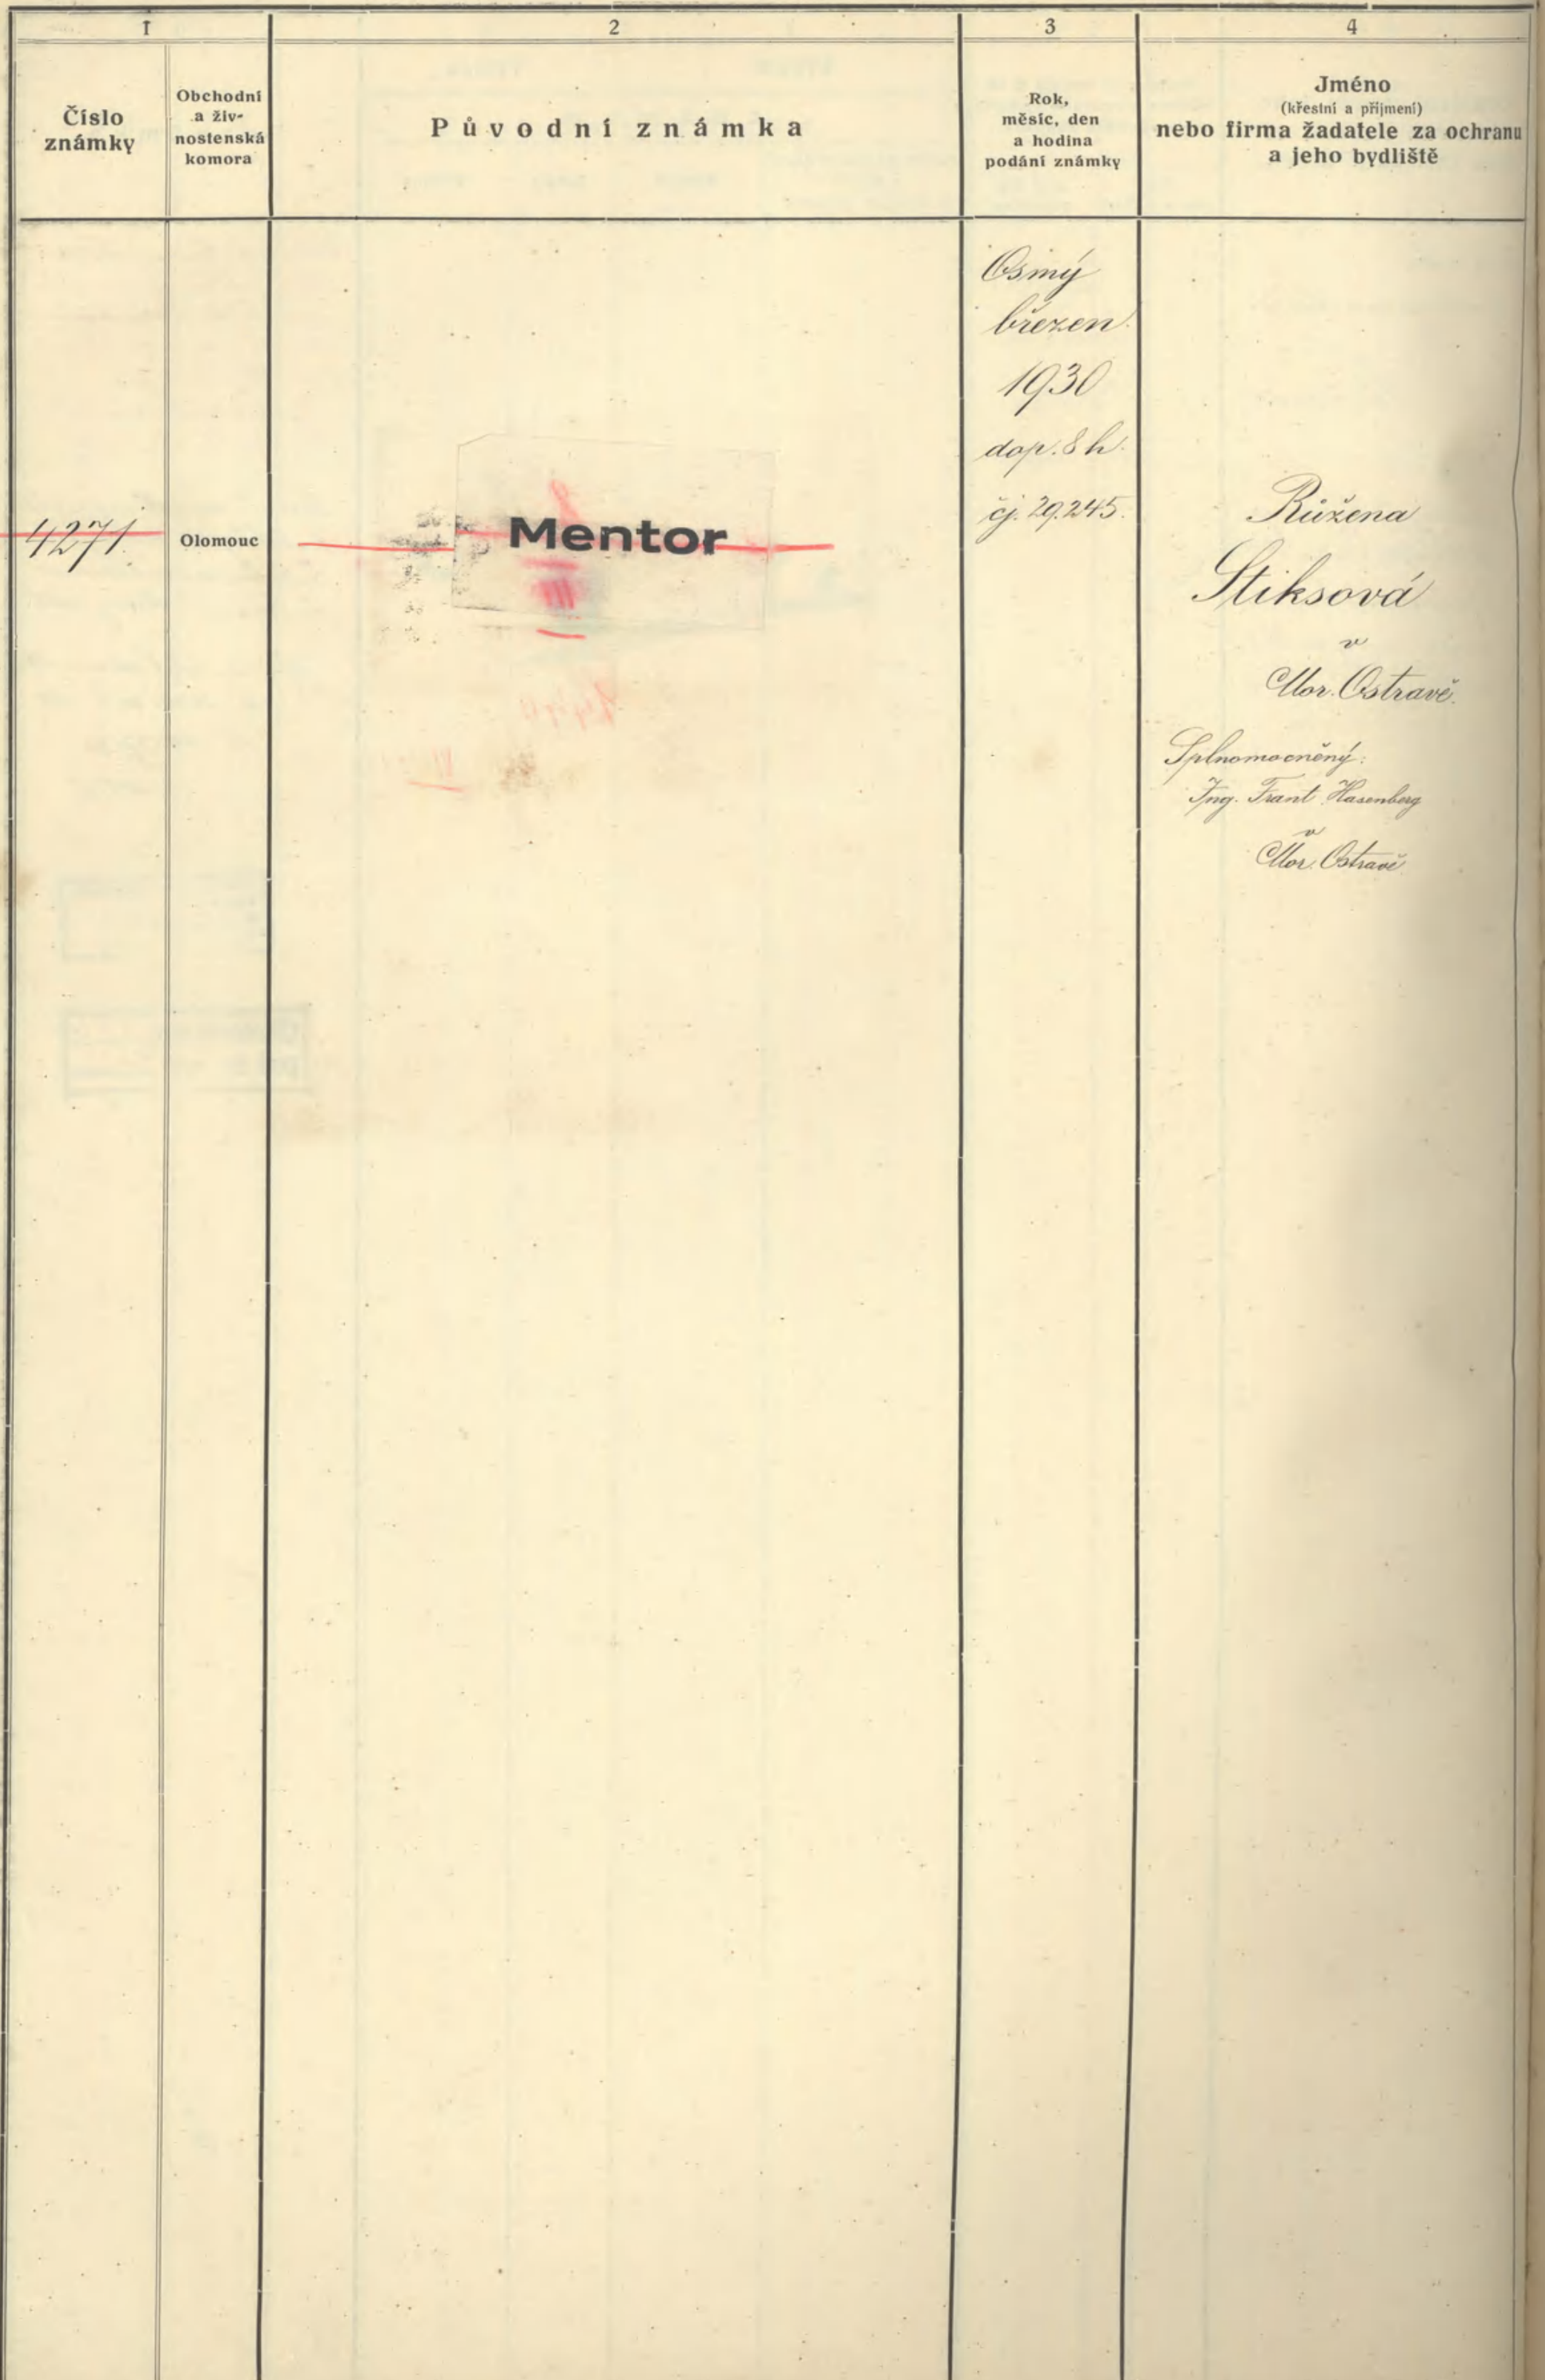 1
2
3
4
Číslo
známky
Obchodní
a živ-
nostenská
komora
Původní známka
Rok,
měsíc, den
a hodina
podání známky
Jméno
(křestní a příjmení)
nebo firma žadatele za ochranu
a jeho bydliště
4271.
Olomouc
Mentor
Osmý
březen
1930
dop. 8 h.
čj. 29.245.
Růžena
Stiksová
v
Mor. Ostravě.
Splnomocněný:
Ing. Frant. Hasenberg
v
Mor. Ostravě